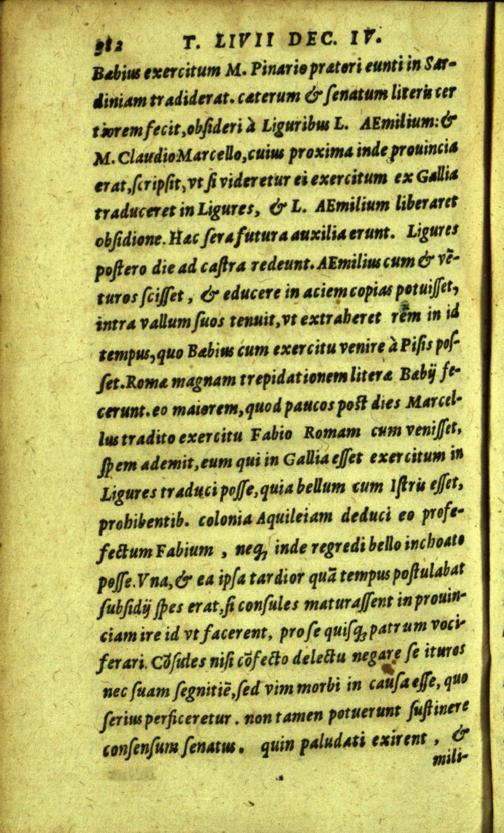 982 T. LIVII DEC. IV.
Babius exercitum M. Pinario prætori eunti in Sar-
diniam tradiderat. cæterum & senatum literis cer
tiorem fecit, obsideri à Liguribus L. AEmilium: &
M. Claudio Marcello, cuius proxima inde prouincia
erat, scripsit, vt si videretur ei exercitum ex Gallia
traduceret in Ligures, & L. AEmilium liberaret
obsidione. Hac sera futura auxilia erunt. Ligures
postero die ad castra redeunt. AEmilius cum & vē-
turos scisset, & educere in aciem copias potuisset,
intra vallum suos tenuit, vt extraheret rem in id
tempus, quo Babius cum exercitu venire à Pisis pos-
set. Romæ magnam trepidationem literæ Babij fe-
cerunt. eo maiorem, quod paucos post dies Marcel-
lus tradito exercitu Fabio Romam cum venisset,
spem ademit, eum qui in Gallia esset exercitum in
Ligures traduci posse, quia bellum cum Istris esset,
prohibentib. colonia Aquileiam deduci eo profe-
fectum Fabium , neq; inde regredi bello inchoato
posse. Vna, & ea ipsa tardior quā tempus postulabat
subsidij spes erat, si consules maturassent in prouin-
ciam ire id vt facerent, pro se quisq; patrum voci-
ferari. Cōsules nisi cōfecto delectu negare se ituros
nec suam segnitiē, sed vim morbi in causa esse, quo
serius perficeretur . non tamen potuerunt sustinere
consensum senatus. quin paludati exirent , &
mili-